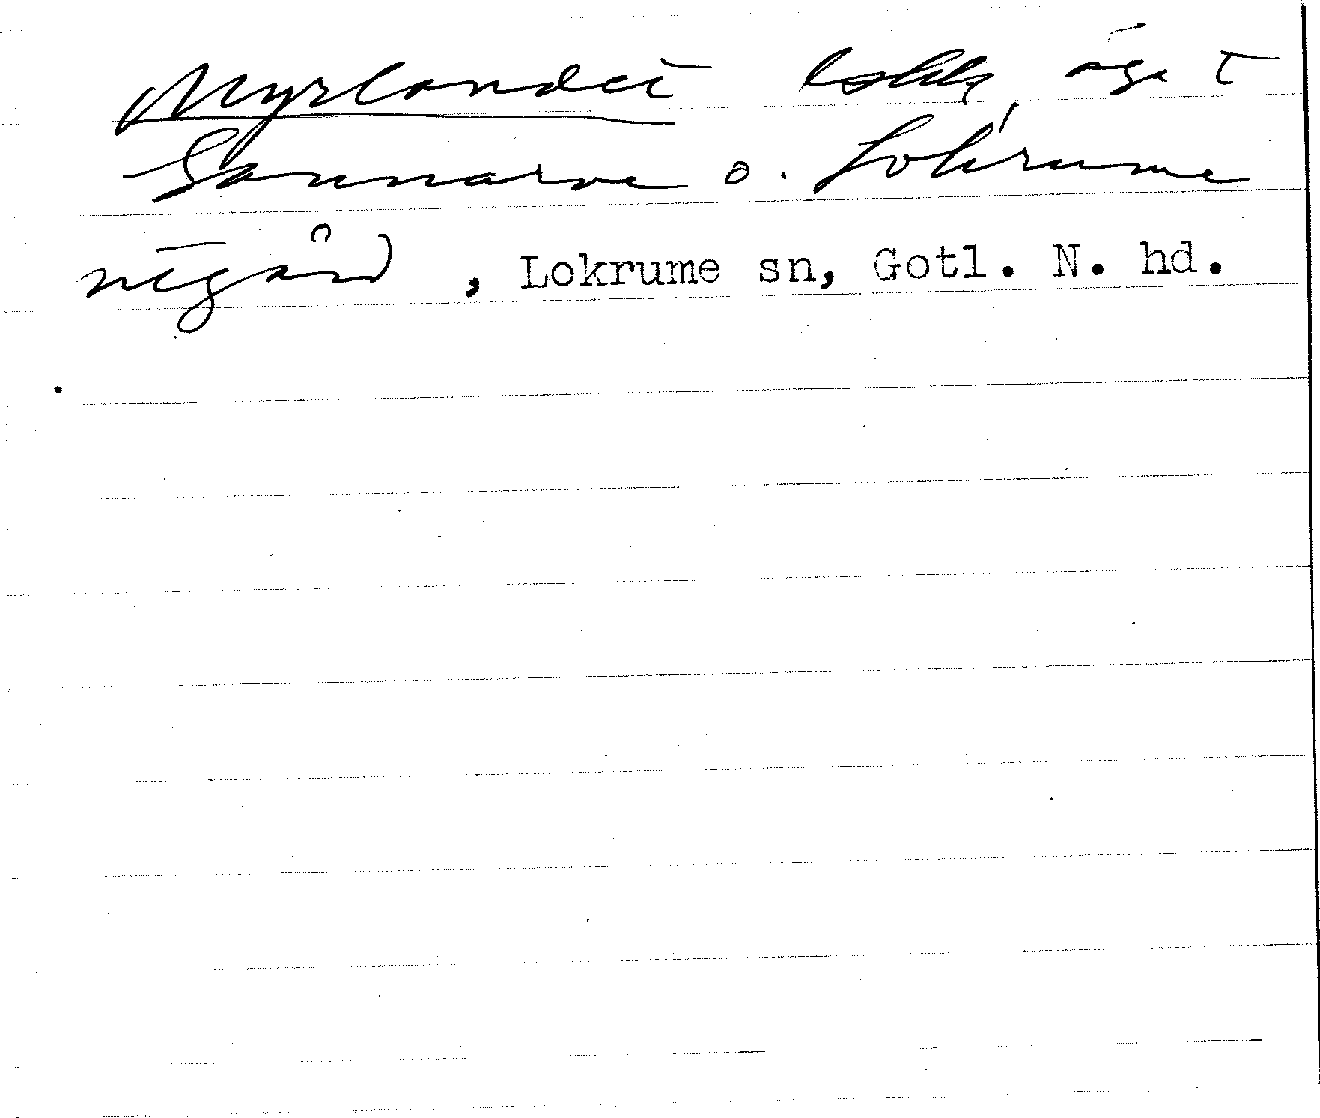 Myrlandet äga t
Sannarve o. Lokrume
nigård, Lokrume sn, Gotl. N. hd.